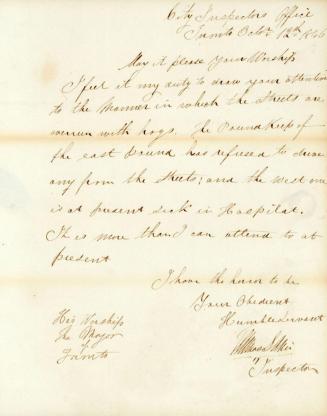 City Inspectors Office
Toronto Octr 12th 1846
May it please Your Worship
I feel it my duty to draw your attention
to the manner in which the Streets are
overrun with hogs. The Pound Keeper of
the east Pound has refused to drive
any from the Streets; and the west one
is at present sick in Hospital.
It is more than I can attend to at
present
I have the honor to be
Your Obedient
Humble Servant
Inspector
His Worship
The Mayor
Toronto